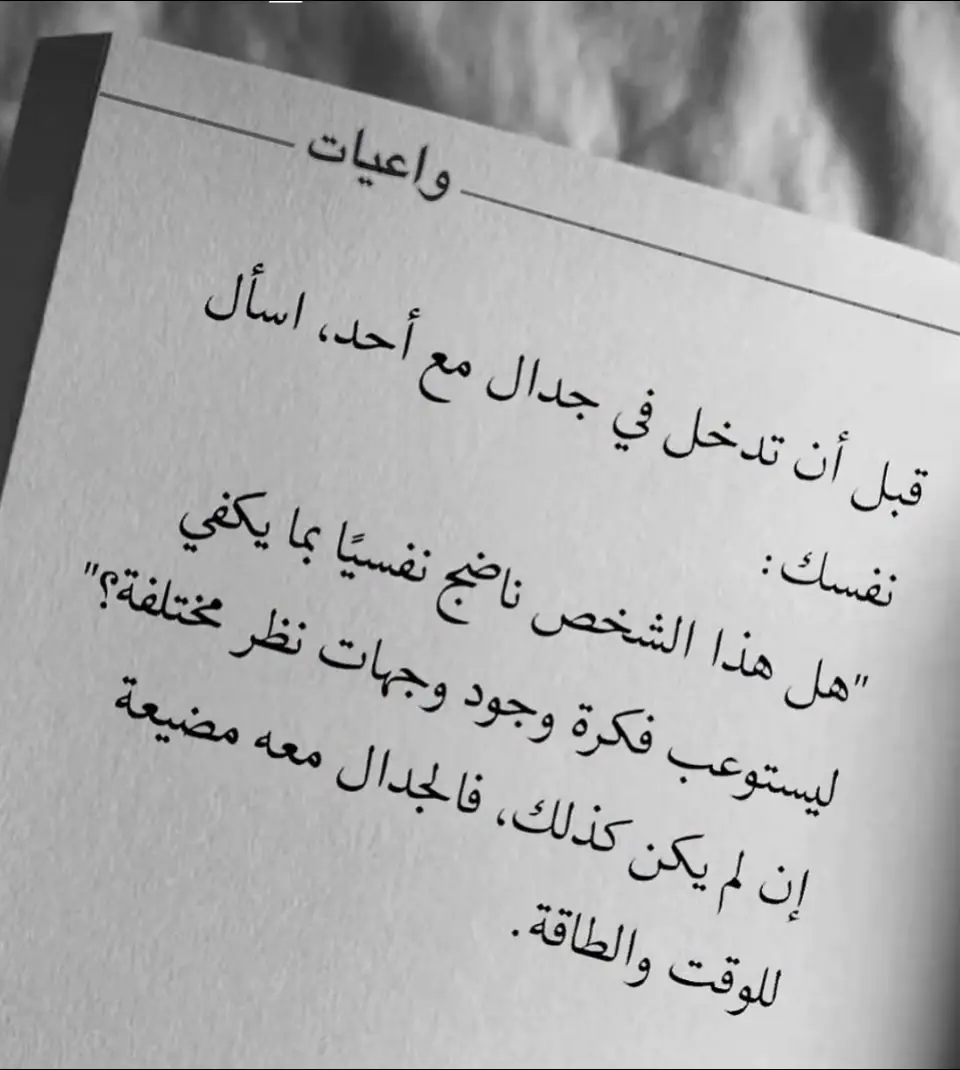 واعيات
قبل أن تدخل في جدال مع أحد، اسأل
نفسك:
"هل هذا الشخص ناضج نفسيًا بما يكفي
ليستوعب فكرة وجود وجهات نظر مختلفة؟"
إن لم يكن كذلك، فالجدال معه مضيعة
للوقت والطاقة.